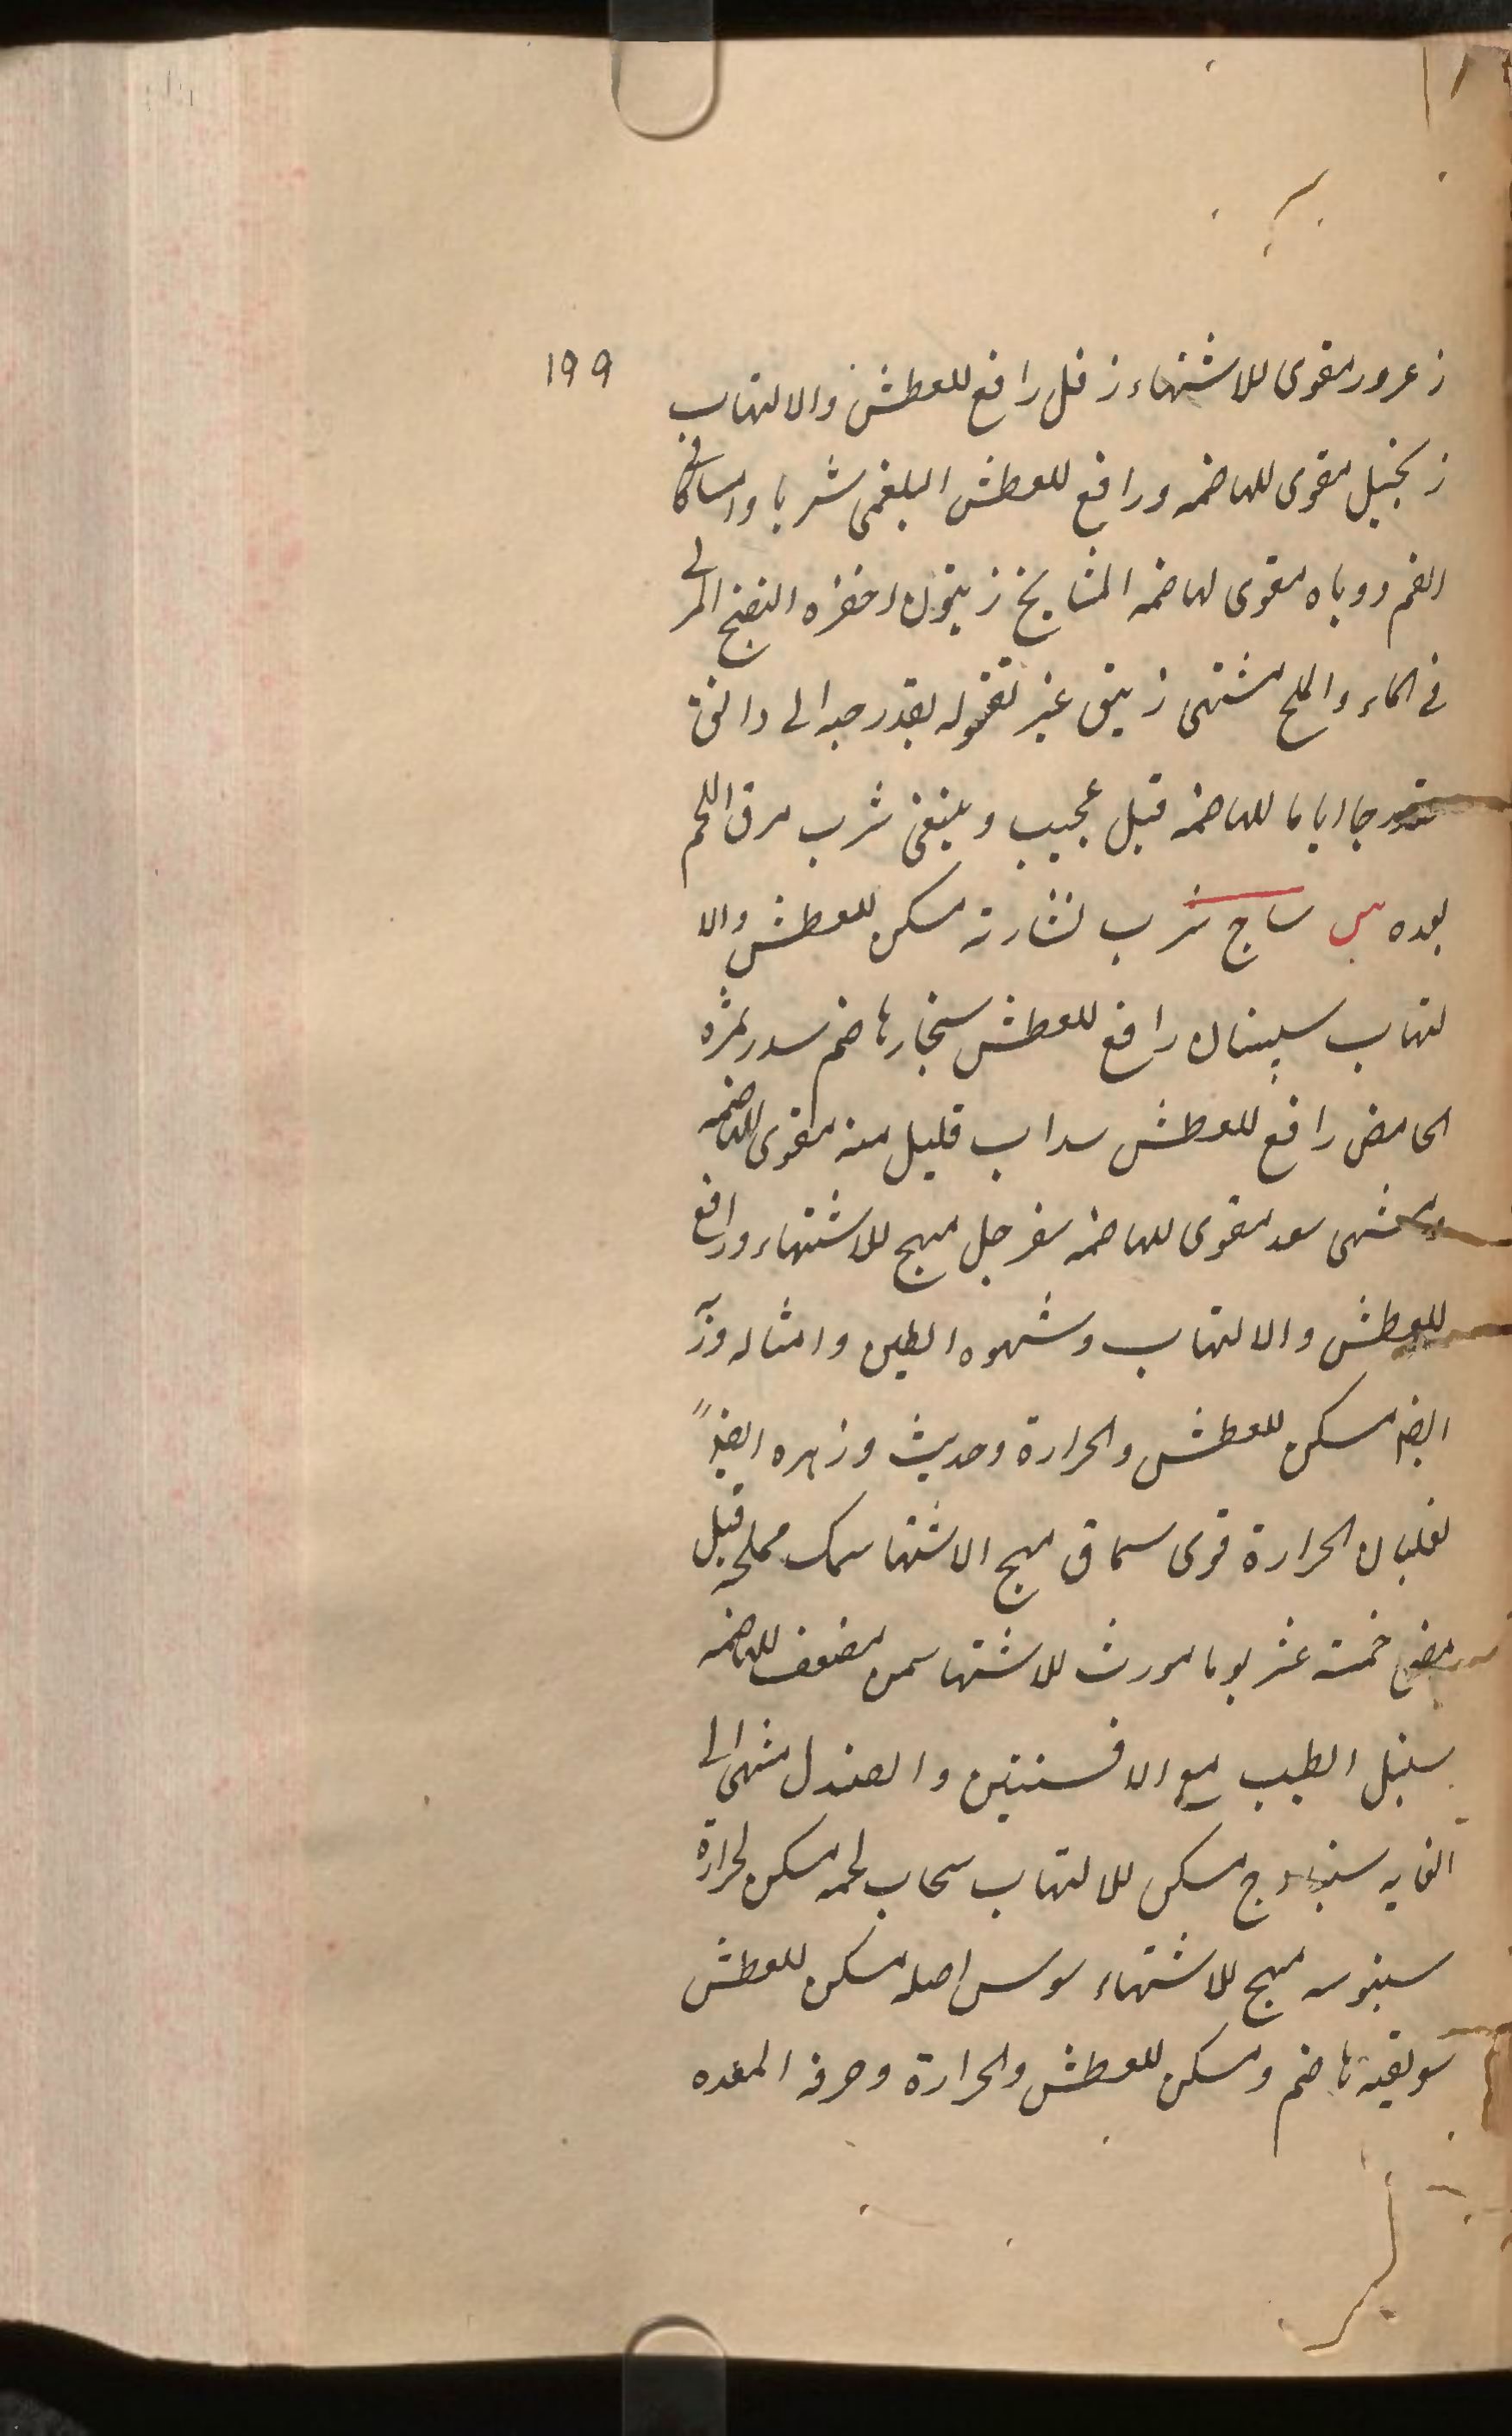 ١٩٩
زعرور مقوى للاشتهاء زفل رافع للعطش والالتهاب
زنجبيل مقوى للهاضمه ورافع للعطش البلغمى شربا وامساكا فى
الفم ودوباه مقوى لهاضمه المشايخ زيتون اخضره النضيج المربى
فى الماء والملح مشتهى زيبق غير مقتوله بقدر حبه الى دانق
متدرجا اياما للهاضمه قيل عجيب وينبغى شرب مرق اللحم
بعده س ساج شرب نشارته مسكن للعطش والا
لتهاب سپستان رافع للعطش سنجار هاضم سدر ثمره
الحامض رافع للعطش سداب قليل منه مقوى للهاضمه
ومشتهى سعد مقوى للهاضمه سفرجل مهيج للاشتهاء ورافع
للعطش والالتهاب وشهوه الطين وامثاله وربه
ايضا مسكن للعطش والحرارة وحديث وزهره ايضاً
لغليان الحرارة قوى سماق مهيج الاشتها سمك مملحه قبل
مضى خمسة عشر يوما مورث للاشتها سمن مضعف للهاضمه
سنبل الطيب مع الافسنتين والصندل مشهى الى
الغايه مسكن للالتهاب سحاب لحمه مسكن لحرارة
سنبوسه مهيج للاشتهاء سوس اصله مسكن للعطش
سويقه هاضم ومسكن للعطش والحرارة وحرقه المعده